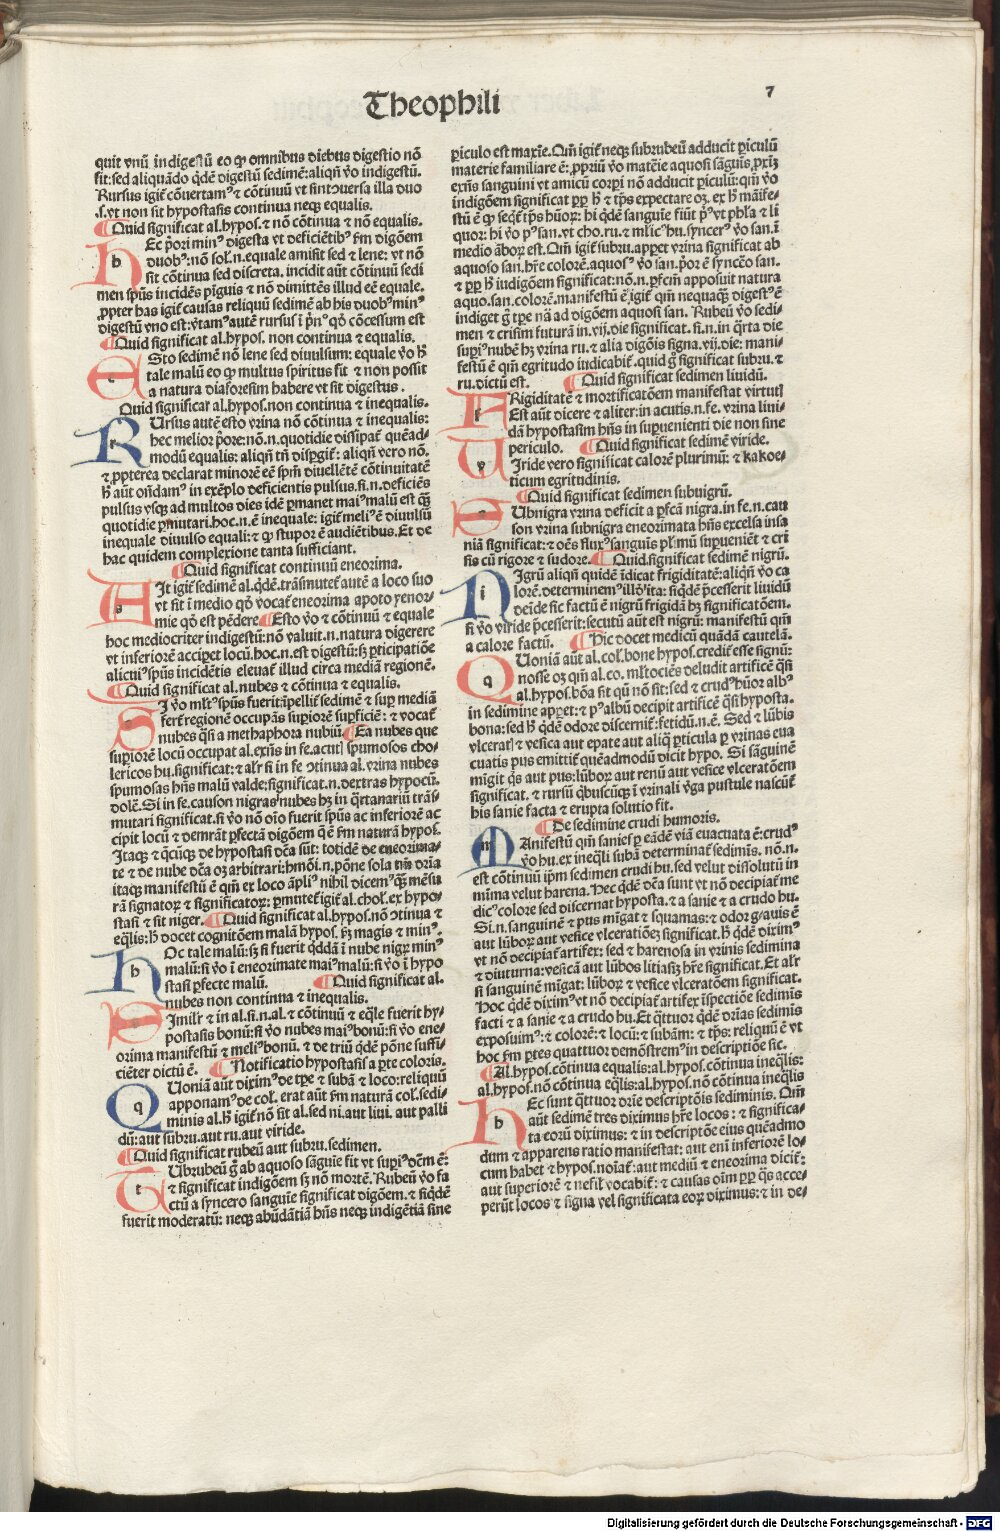 Theophili
7
quit vnū indigestū eo ꝙ omnibus diebus digestio nō
fit: sed aliquādo q̄dē digestū sedimē: aliqñ ṽo indigestū.
Rursus igit̃ cōuertamꝰ ⁊ cōtinuū vt sint ↄuersa illa duo
.s. vt non sit hypostasis continua neqꝫ equalis.
¶Quid significat al. hypos. ⁊ nō cōtinua ⁊ nō equalis.
hEc p̃ori minꝰ digesta vt deficiētibꝰ ẜm digōem
duobꝰ: nō sol. n. equale amisit sed ⁊ lene: vt nō
sit cōtinua sed discreta. incidit aūt cōtinuū sedi
men sp̄us incidēs pīguis ⁊ nō dimittēs illud eē equale.
ꝓpter has igit̃ causas reliquū sedimē ab his duobꝰ minꝰ
digestū vno est: v̄tamꝰ autē rursus ī p̄nꝰ qꝺ̄ cōcessum est
¶Quid significat al. hypos. non continua ⁊ equalis.
eSto sedimē nō lene sed diuulsum: equale ṽo h̄
tale malū eo ꝙ multus spiritus fit ⁊ non possit
a natura diaforesim habere vt sit digestus.
Quid significat al. hypos. non continua ⁊ inequalis.
rUrsus autē esto vrina nō cōtinua ⁊ inequalis:
hec melior p̃ore: nō. n. quotidie dissipat̃ quēad-
modū equalis: aliqñ tñ dispgit̃: aliqñ vero nō.
⁊ ꝓpterea declarat minorē eē spm̄ diuellētē cōtinuitatē
h̄ aūt oñdamꝰ in exēplo deficientis pulsus. si. n. deficiēs
pulsus vsqꝫ ad multos dies idē ꝑmanet maiꝰ malū est q̄ꝫ
quotidie ꝑmutari. hoc. n. ē inequale: igit̃ meliꝰ ē diuulsū
inequale diuulso equali: ⁊ ꝙ stupor ē audiētibus. Et de
hac quidem complexione tanta sufficiant.
¶Quid significat continuū eneorima.
aIt igit̃ sedimē al. q̄dē. trāsmutet̃ autē a loco suo
vt sit ī medio qꝺ̄ vocat̃ eneorima apoto yenor-
mie qꝺ̄ est pēdere ¶Esto ṽo ⁊ cōtinuū ⁊ equale
hoc mediocriter indigestū: nō valuit. n. natura digerere
vt inferiorē accipet locū. hoc. n. est digestū: sꝫ ꝑticipatiōe
alicuiꝰ sp̄us incidētis eleuat̃ illud circa mediā regionē.
¶Quid significat al. nubes ⁊ cōtinua ⁊ equalis.
SI ṽo mlt̃ꝰ sp̄us fuerit īpellit̃ sedimē ⁊ suꝑ mediā
fert̃ regionē occupās suꝑiorē suꝑficiē: ⁊ vocat̃
nubes q̄si a methaphora nubiū ¶Ea nubes que
suꝑiorē locū occupat al. exñs in fe. acut̃ spumosos cho-
lericos hu. significat: ⁊ alr̃ si in fe ↄtinua al. vrina nubes
spumosas hñs malū valde: significat. n. dextras hypocū.
dolē. Si in fe. causon nigras nubes hꝫ in q̄rtanariū trās-
mutari significat. si ṽo nō oīo fuerit sp̄us ac inferiorē ac
cipit locū ⁊ demrāt ꝑfectā digōem q̄ ē ẜm naturā hypos.
Itaqꝫ ⁊ q̄cūqꝫ de hypostasi dc̄a sūt: totidē de eneorima-
te ⁊ de nube dc̄a oꝫ arbitrari: hmōi. n. pōne sola tm̄ dr̄ia
itaqꝫ manifestū ē qm̄ ex loco āpliꝰ nihil dicemꝰ q̄ꝫ mēsu
rā signatoꝝ ⁊ significatoꝝ: ꝑmutet̃ igit̃ al. chol. ex hypo-
stasi ⁊ sit niger. ¶Quid significat al. hypos. nō ↄtinua ⁊
eq̄lis: h̄ docet cognitōem malā hypos. sꝫ magis ⁊ minꝰ.
hOc tale malū: sꝫ si fuerit q̄ddā ī nube nigꝝ minꝰ
malū: si ṽo ī eneorimate maiꝰ malū: si ṽo ī hypo
stasi ꝑfecte malū. ¶Quid significat al.
nubes non continua ⁊ inequalis.
SImilr̃ ⁊ in al. si. n. al. ⁊ cōtinuū ⁊ eq̄le fuerit hy-
postasis bonū: si ṽo nubes maiꝰ bonū: si ṽo ene-
orima manifestū ⁊ meliꝰ bonū. ⁊ de triū q̄dē pōne suffi-
ciēter dictū ē. ¶Notificatio hypostasis a ꝑte coloris.
qUoniā aūt diximꝰ de tꝑe ⁊ subā ⁊ loco: reliquū
apponamꝰ de col. erat aūt ẜm naturā col. sedi-
minis al. h̄ igit̃ nō sit al. sed ni. aut liui. aut palli
dū: aut subru. aut ru. aut viride.
¶Quid significat rubeū aut subru. sedimen.
tUbrubeū g̃ ab aquoso sāguie fit vt supiꝰ dc̄m ē:
⁊ significat indigōem sꝫ nō mortē. Rubeū ṽo fa
ctū a syncero sanguie significat digōem. ⁊ siq̄dē
fuerit moderatū: neqꝫ abūdātiā hñs neqꝫ indigētiā sine
ꝑiculo est maxīe. Qm̄ igit̃ neqꝫ subrubeū adducit ꝑiculū
materie familiare ē: ꝓpriū ṽo matēie aquosi sāguis ꝓxīꝫ
exñs sanguini vt amicū corꝑi nō adducit ꝑiculū: qm̄ ṽo
indigōem significat ꝓp h̄ ⁊ tp̄s expectare oꝫ. ex h̄ maīfe-
stū ē ꝙ seq̄t̃ tp̄s hūoꝝ: hi q̄dē sanguīe fiūt pꝰ vt phl̃a ⁊ li
quor: hi ṽo pꝰ san. vt cho. ru. ⁊ ml̃ic̄ꝰ hu. syncerꝰ ṽo san. ī
medio āboꝝ est. Qm̄ igit̃ subru. apꝑet vrina significat ab
aquoso san. hr̃e colorē. aquosꝰ ṽo san. p̃or ē syncēo san.
⁊ ꝓp h̄ indigōem significat: nō. n. ꝑfcm̄ apposuit natura
aquo. san. colorē. manifestū ē igit̃ qm̄ nequaqꝫ digestꝰ ē
indiget g̃ tꝑe nā ad digōem aquosi san. Rubeū ṽo sedi-
men ⁊ crisim futurā in. vij. die significat. si. n. in q̄rta die
supiꝰ nubē hꝫ vrina ru. ⁊ alia digōis signa. vij. die: mani-
festū ē qm̄ egritudo iudicabit̃. quid g̃ significat subru. ⁊
ru. dictū est. ¶Quid significat sedimen liuidū.
fRigiditatē ⁊ mortificatōem manifestat virtut̃
Est aūt dicere ⁊ aliter: in acutis. n. fe. vrina liui-
dā hypostasim hñs in suꝑuenienti die non sine
periculo. ¶Quid significat sedimē viride.
vIride vero significat calorē plurimū: ⁊ kakoe-
ticum egritudinis.
¶Quid significat sedimen subnigrū.
sUbnigra vrina deficit a ꝑfcā nigra. in fe. n. cau
son vrina subnigra eneorimata hñs excelsa insa
niā significat: ⁊ oēs fluxꝰ sanguis pl̃mū suꝑueniēt ⁊ cri
sis cū rigore ⁊ sudore. ¶Quid significat sedimē nigrū.
nIgrū aliqñ quidē īdicat frigiditatē: aliqñ ṽo ca
lorē. determinemꝰ illđ ita: siq̄dē p̄cesserit liuidū
deīde sic factū ē nigrū frigidā hꝫ significatōem.
si ṽo viride p̄cesserit: secutū aūt est nigrū: manifestū qm̄
a calore factū. ¶Hic docet medicū quādā cautelā.
qUoniā aūt al. col. bone hypos. credit̃ esse signū:
nosse oꝫ qm̄ al. co. ml̃tociēs deludit artificē q̄si
al. hypos. bōa sit qū nō sit: sed ⁊ crudꝰ hūor albꝰ
in sedimine apꝑet: ⁊ pꝰ albū decipit artificē q̄si hyposta.
bona: sed h̄ q̄dē odore discernit̃: fetidū. n. ē. Sed ⁊ lūbis
vlcerat̃ ⁊ vesica aut epate aut aliq̄ ꝑticula ꝑ vrinas eua
cuatis pus emittit̃ quēadmodū dicit hypo. Si sāguinē
mīgit q̄s aut pus: lūboꝝ aut renū aut vesice vlceratōem
significat. ⁊ rursū q̄buscūqꝫ ī vrinali v̄ga pustule nascūt̃
his sanie facta ⁊ erupta solutio fit.
¶De sedimine crudi humoris.
mAnifestū qm̄ sanies ꝑ eādē viā euacuata ē: crudꝰ
ṽo hu. ex ineq̄li subā determinat̃ sedimīs. nō. n.
est cōtinuū ipm̄ sedimen crudi hu. sed velut dissolutū in
mīma velut harena. Hec q̄dē dc̄a sunt vt nō decipiat̃ me
dicꝰ colore sed discernat hyposta. ⁊ a sanie ⁊ a crudo hu.
Si. n. sanguinē ⁊ pus mīgat ⁊ squamas: ⁊ odor grauis ē
aut lūboꝝ aut vesice vlceratiōeꝫ significat. h̄ q̄dē diximꝰ
vt nō decipiat̃ artifex: sed ⁊ harenosa in vrinis sedimina
⁊ diuturna: vesicā aut lūbos litiasiꝫ hr̃e significat. Et alr̃
si sanguinē mīgat: lūboꝝ ⁊ vesice vlceratōem significat.
Hoc q̄dē diximꝰ vt nō decipiat̃ artifex īspectiōe sedimīs
facti ⁊ a sanie ⁊ a crudo hu. Et q̄ttuor q̄dē dr̄ias sedimīs
exposuimꝰ: ⁊ colorē: ⁊ locū: ⁊ subām: ⁊ tp̄s: reliquū ē vt
hoc ẜm ꝑtes quattuor demōstremꝰ in descriptiōe sic.
¶Al. hypos. cōtinua equalis: al. hypos. cōtinua ineq̄lis:
al. hypos. nō cōtinua eq̄lis: al. hypos. nō cōtinua ineq̄lis
hEc sunt q̄ttuor dr̄ie descriptōis sediminis. Qm̄
aūt sedimē tres diximus hr̃e locos: ⁊ significa-
ta eorū diximus: ⁊ in descriptōe eius quēadmo
dum ⁊ apparens ratio manifestat: aut eni inferiorē lo-
cum habet ⁊ hypos. noīat̃: aut mediū ⁊ eneorima dicit̃:
aut superiorē ⁊ nefil vocabit̃: ⁊ causas oīm ꝑ ꝑ q̄s acce-
perūt locos ⁊ signa vel significata eoꝝ diximus: ⁊ in de-
Digitalisierung gefördert durch die Deutsche Forschungsgemeinschaft - DFG